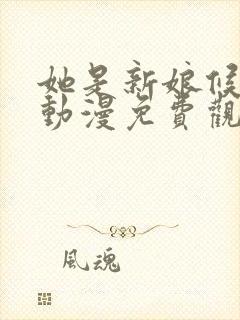 她是新娘候
動漫免費觀
風魂